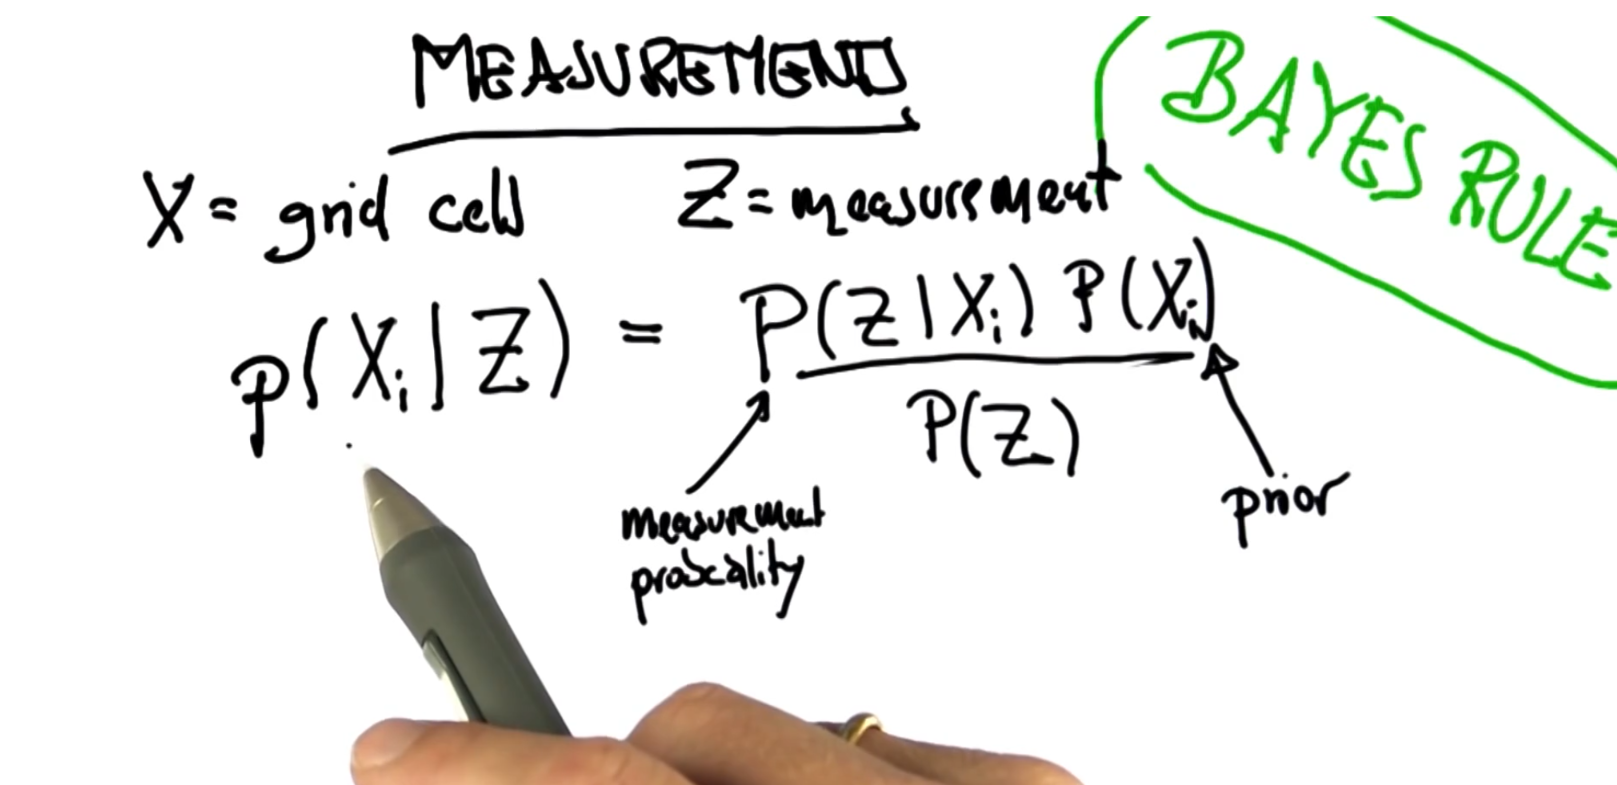 MEASUREMENT
BAYES RULE
X = grid cell
Z = measurement
P(Xi|Z) = P(Z|Xi) P(Xi)
P(Z)
measurement
probability
prior